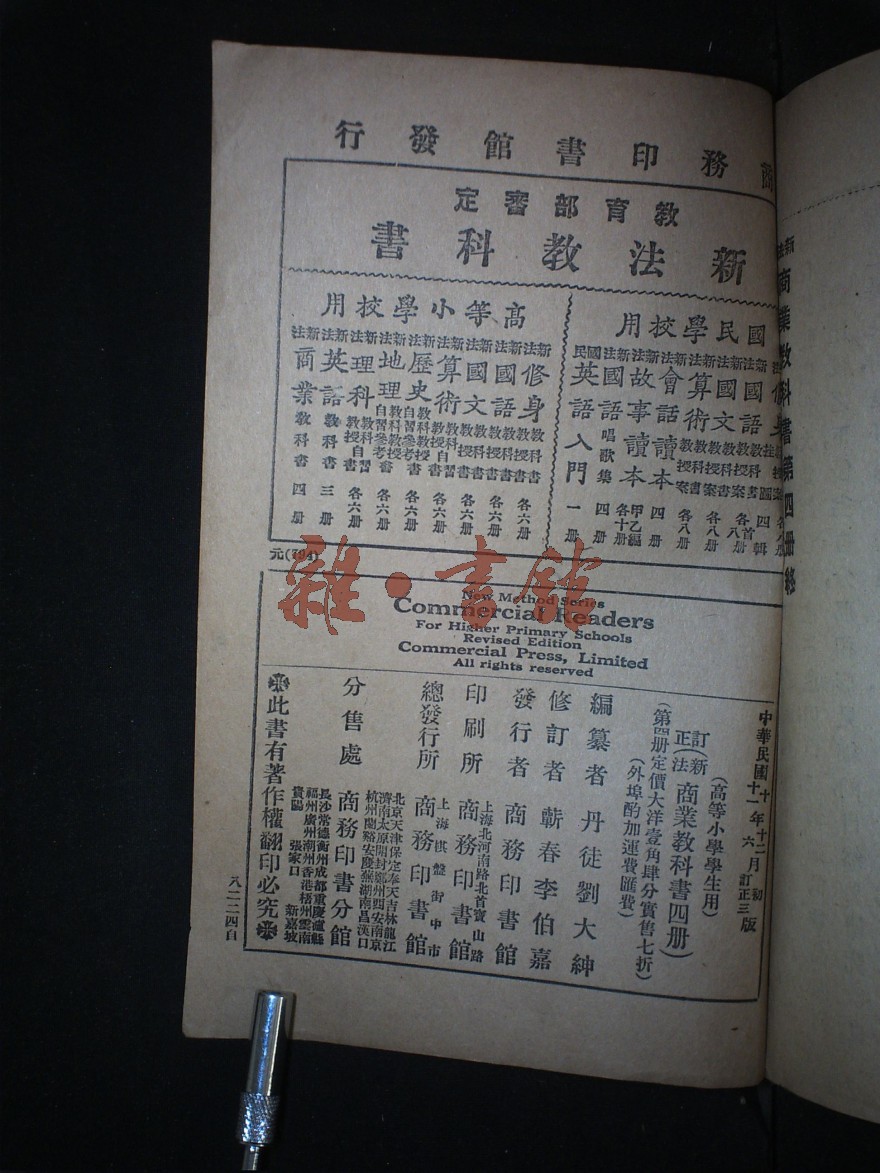 商務印書館發行
教育部審定
新法教科書
國民學校用
新法國語教科書 教授案 各八册
新法國文教科書 教授案 各八册
新法算術教科書 教授案 各八册
新法會話讀本 四册
新法故事讀本 甲乙編 各十册
新法國語唱歌集 四册
國民英語入門 一册
高等小學校用
新法修身教科書 教授書 各六册
新法國語教科書 教授書 各六册
新法國文教科書 教授書 各六册
新法算術教科書 教授書 自習書 各六册
新法歷史教科書 教授書 自習參考書 各六册
新法地理教科書 教授書 自習參考書 各六册
新法理科教科書 教授書 自習書 各六册
新法英語教科書 三册
新法商業教科書 四册
元(794)
New Method Series
Commercial Readers
For Higher Primary Schools
Revised Edition
Commercial Press, Limited
All rights reserved
中華民國十年十二月初版
十一年六月訂正三版
(高等小學學生用)
(訂正新法商業教科書四册)
(第四册定價大洋壹角肆分實售七折)
(外埠酌加運費匯費)
編纂者 丹徒劉大紳
修訂者 蘄春李伯嘉
發行者 商務印書館
印刷所 上海北河南路北首寶山路 商務印書館
總發行所 上海棋盤街中市 商務印書館
分售處 商務印書分館
北京天津保定奉天吉林龍江
濟南太原開封鄭州西安南京
杭州蘭谿安慶蕪湖南昌漢口
長沙常德衡州成都重慶瀘縣
福州廣州潮州香港梧州雲南
貴陽 張家口 新嘉坡
此書有著作權翻印必究
八二二四自
新法商業教科書第四册終
雜·書館